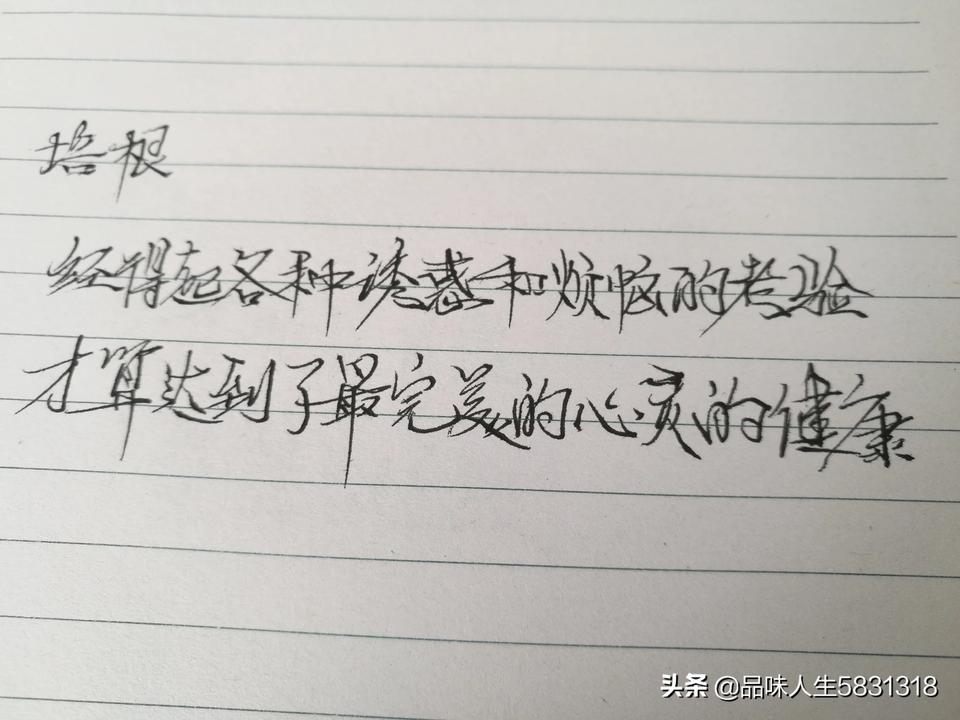 培根
经得起各种诱惑和烦恼的考验
才算达到了最完美的心灵的健康
头条 @品味人生5831318